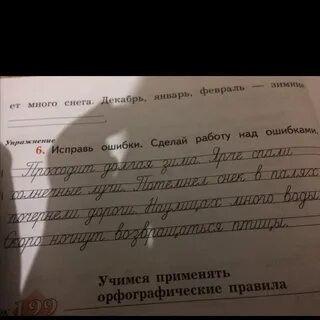 ет много снега. Декабрь, январь, февраль — зимние
Упражнение
6. Исправь ошибки. Сделай работу над ошибками.
Проходит долгая зима. Ярче спали
солнечные лучи. Потемнел снек в палях
почернели дороги. Наулицах много воды
Скоро начнут возвращаться птицы.
Учимся применять
орфографические правила
199